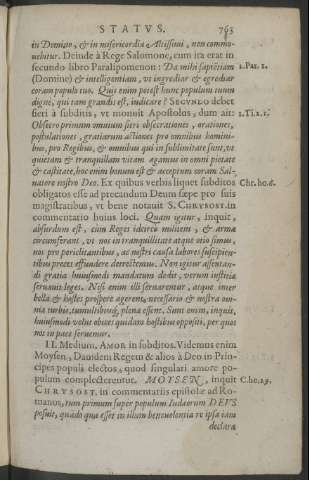 STATVS. 763
in Domino, & in misericordia Altissimi, non commo-
uebitur. Deinde à Rege Salomone, cum ita erat in
secundo libro Paralipomenon: Da mihi sapiētiam 2. Par. 1.
(Domine) & intelligentiam, vt ingrediar & egrediar
coram populo tuo. Quis enim potest hunc populum tuum
digne, qui tam grandis est, iudicare? SECVNDO debet
fieri à subditis, vt monuit Apostolus, dum ait: 1. Ti. 2. 1.
Obsecro primum omnium fieri obsecrationes, orationes,
postulationes, gratiarum actiones pro omnibus homini-
bus, pro Regibus, & omnibus qui in sublimitate sunt, vt
quietam & tranquillam vitam agamus in omni pietate
& castitate, hoc enim bonum est & acceptum coram Sal-
uatore nostro Deo. Ex quibus verbis liquet subditos Chr. ho. 6.
obligatos esse ad precandum Deum sæpe pro suis
magistratibus, vt bene notauit S. CHRYSOST. in
commentario huius loci. Quam igitur, inquit,
absurdum est, eum Reges idcirco militent, & arma
circumferant, vt nos in tranquillitate atque otio simus,
nos pro periclitantibus, ac nostri causa labores suscipien-
tibus preces effundere detrectemus. Non igitur assentan-
di gratia huiusmodi mandatum dedit, verum iustitiæ
seruauit leges. Nisi enim illi seruarentur, atque inter
bella & hostes prosperè agerent, necessario & nostra om-
nia turbis, tumultibusq́; plena essent. Sunt enim, inquit,
huiusmodi velut obices quidam hostibus oppositi, per quos
nos in pace seruemur.
II. Medium. AMOR in subditos. Videmus enim
Moysen, Dauidem Regem & alios à Deo in Prin-
cipes populi electos, quod singulari amore po-
pulum complecterentur. MOYSEN, inquit C. ho. 29.
CHRYSOST. in commentariis epistolæ ad Ro-
manos, tum primum super populum Iudæorum DEVS
posuit, quādo qua esset in illum beneuolentia re ipsa iam
declara